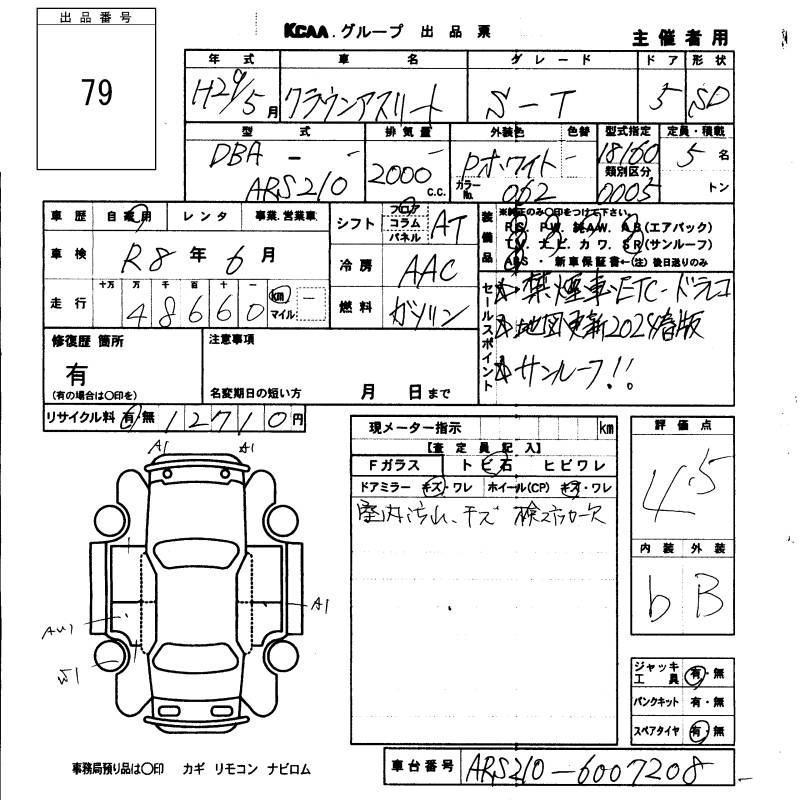 出品番号
79
KCAA. グループ 出品票
主催者用
年式 車名 グレード ドア 形状
H29/5月 クラウンアスリート S-T 5 SD
型式 排気量 外装色 色替 型式指定 定員・積載
DBA - - 2000 c.c. Pホワイト - 18160 5名
ARS210 カラーNo. 062 類別区分 0005 トン
車歴 自家用 レンタ 事業.営業車
シフト フロア コラム パネル AT
装備品 ※純正のみ〇印をつけて下さい。
P.S. P.W. 純A.W. A.B(エアバック)
T.V. ナ.ビ. カ.ワ. S.R(サンルーフ)
A.B.S ・ 新車保証書←(注)後日送りのみ
車検 R8年6月
冷房 AAC
走行 十万 万 千 百 十 一
48660 km マイル -
燃料 ガソリン
セールスポイント
☆禁煙車・ETC・ドラレコ
☆地図更新2024春版
☆サンルーフ!!
修復歴 箇所
有
(有の場合は〇印を)
注意事項
名変期日の短い方 月 日まで
リサイクル料 有・無 12710円
現メーター指示 km
【査定員記入】
Fガラス トビ石 ヒビワレ
ドアミラー キズ・ワレ ホイール(CP) キズ・ワレ
室内汚れ、キズ 検ステッカー欠
評価点
4.5
内装 外装
b B
A1 A1
A1
AU1
W1
ジャッキ工具 有・無
パンクキット 有・無
スペアタイヤ 有・無
事務局預り品は〇印 カギ リモコン ナビロム
車台番号 ARS210-6007208